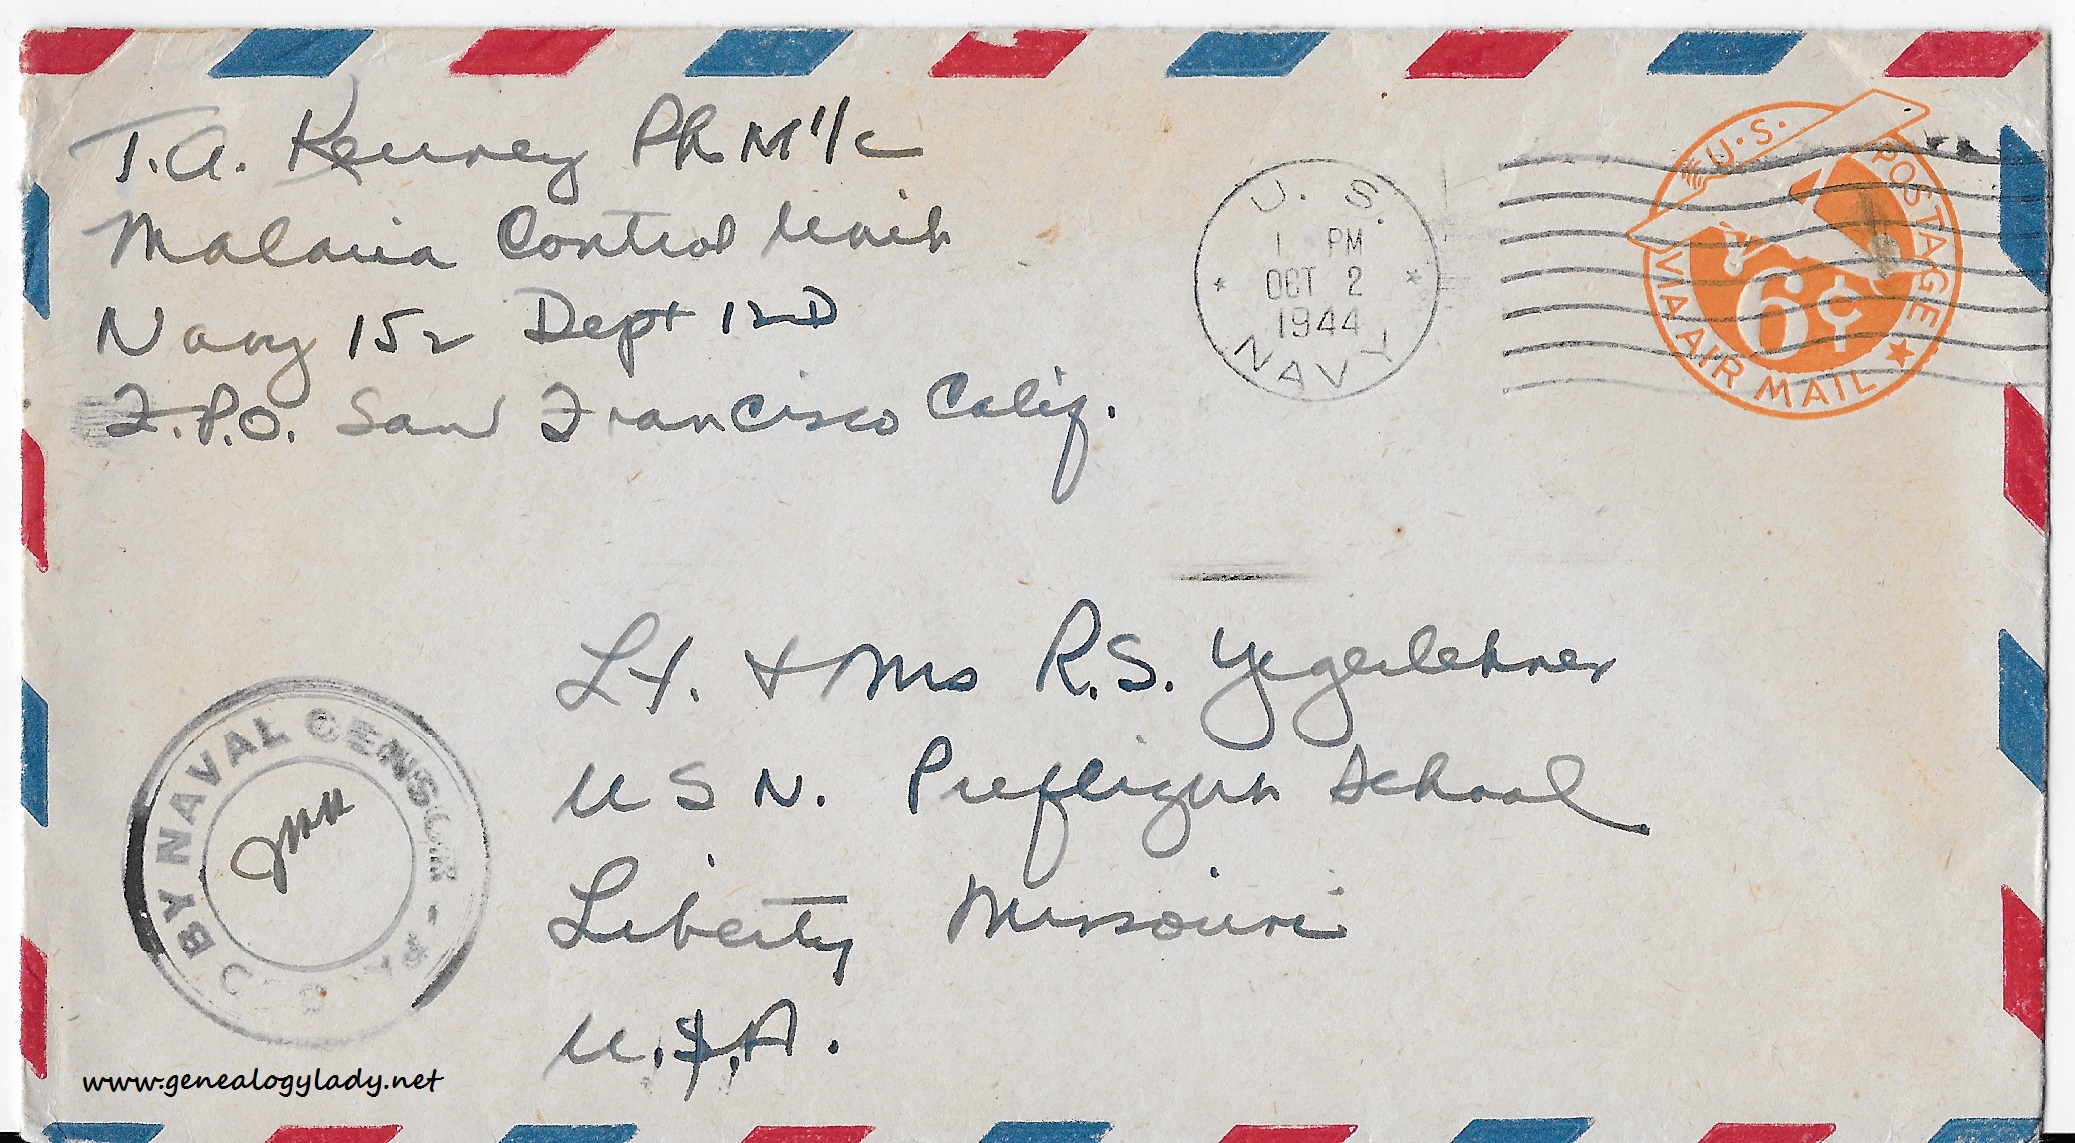 T.A. Kenney PhM 1/c
Malaria Control Unit
Navy 152 Dept 12D
F.P.O. San Francisco Calif.
U. S.
1 PM
OCT 2
1944
NAVY
U.S. POSTAGE
6¢
VIA AIR MAIL
Lt. + Mrs R.S. Yegerlehner
U S N. Preflight School
Liberty Missouri
U.S.A.
PASSED BY NAVAL CENSOR
www.genealogylady.net